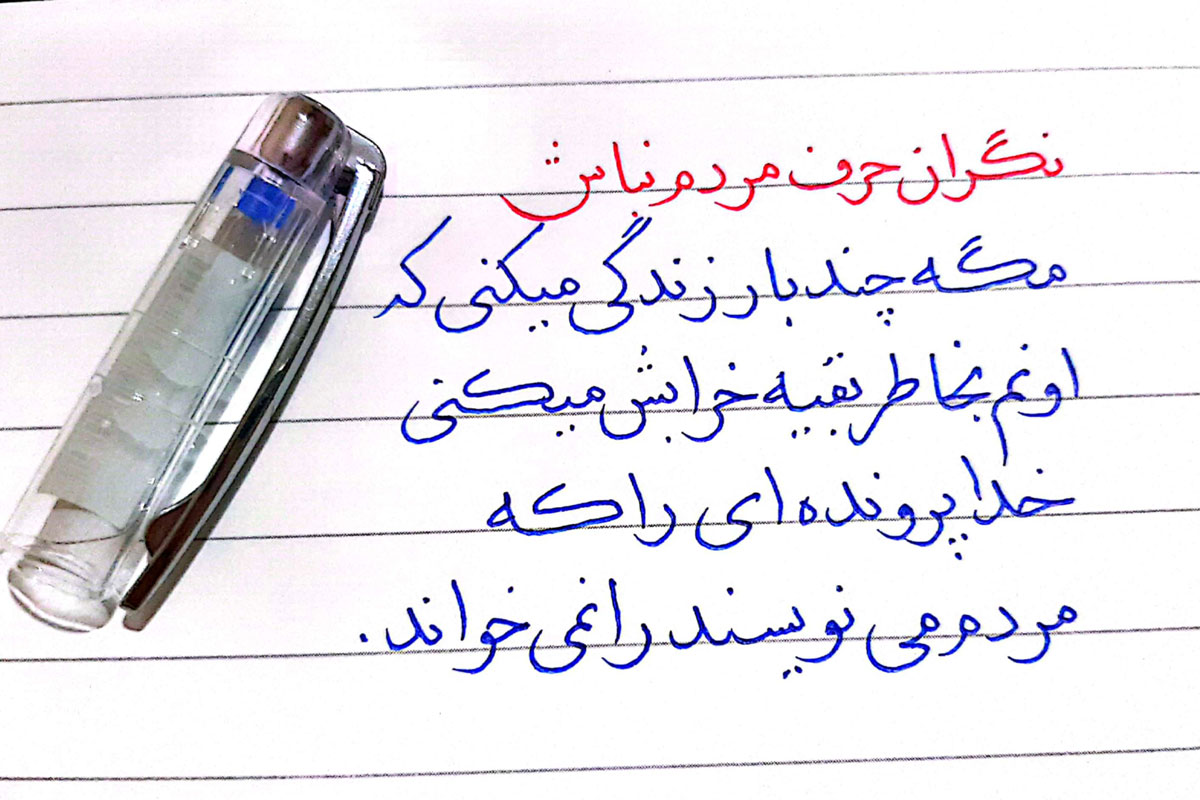 نگران حرف مردم نباش
مگه چند بار زندگی میکنی که
اونم بخاطر بقیه خرابش میکنی
خدا پرونده ای را که
مردم می نویسند را نمی خواند.